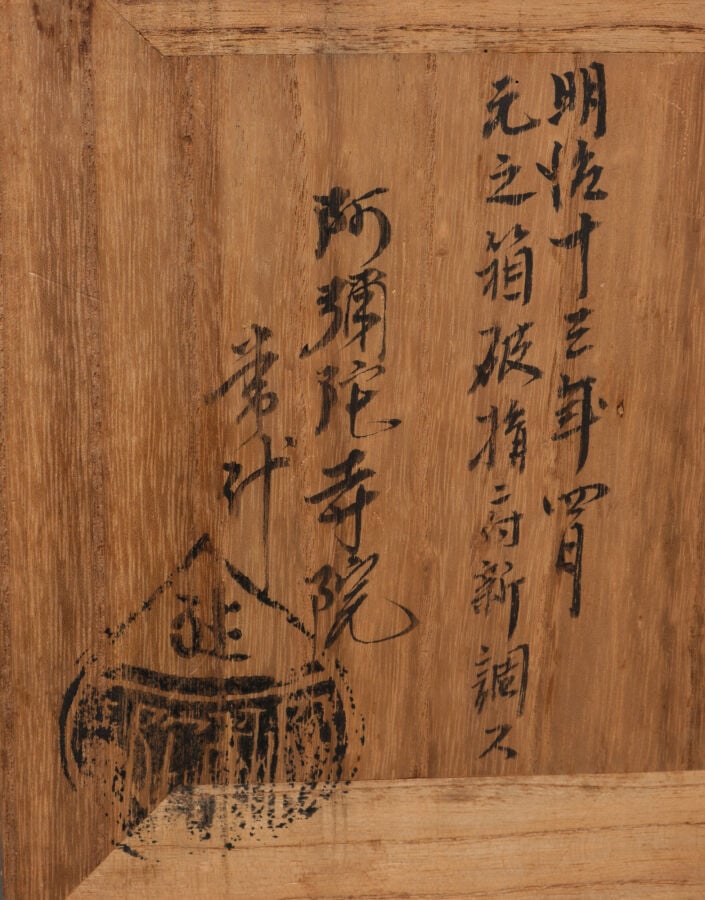 明治十三年四月
元之箱破損ニ付新調ス
阿彌陀寺院
常什